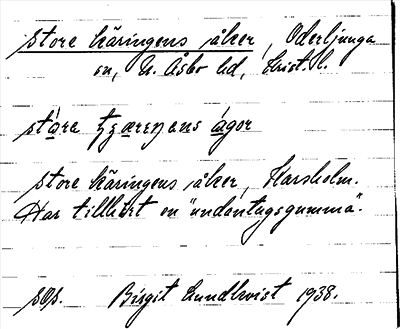 store käringens åker, Oderljunga
sn, N. Åsbo hd, Krist. l.
store käringens åker, Harsholm.
Har tillhört en "undantagsgumma".
sOs. Birgit Lundkvist 1938.